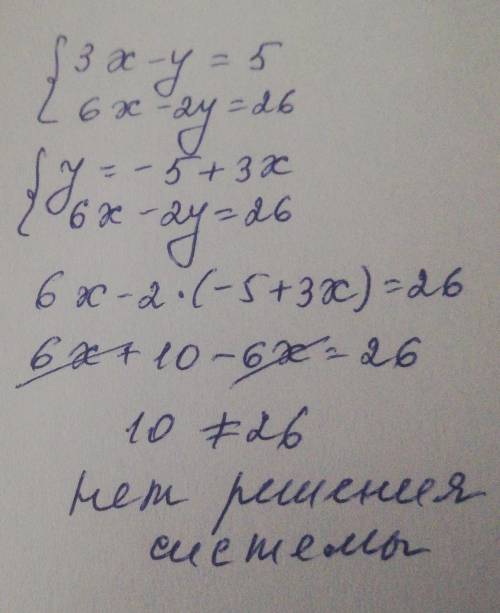 {3x-y=5
6x-2y=26
{y=-5+3x
6x-2y=26
6x-2·(-5+3x)=26
6x+10-6x=26
10≠26
Нет решения
системы